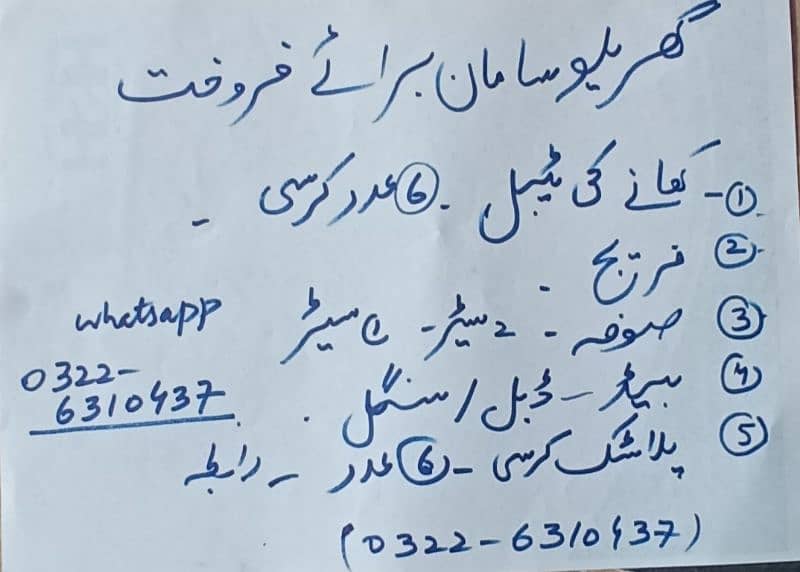 گھریلو سامان برائے فروخت
①- کھانے کی ٹیبل - ⑥ عدد کرسی -
② فریج -
③ صوفہ - 2 سیٹر - ① سیٹر
④ بیڈ - ڈبل / سنگل .
⑤ پلاسٹک کرسی - ⑥ عدد - رابطہ
(0322-6310437)
whatsapp
0322-
6310437